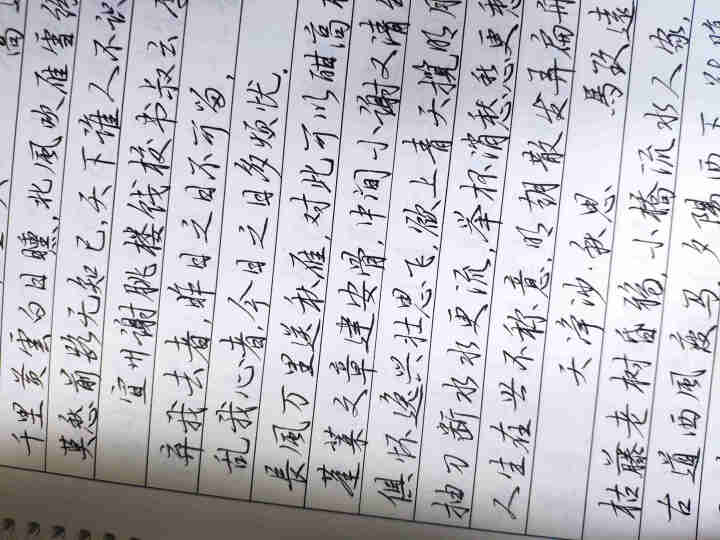 千里黄雲白日曛，北風吹雁雪
莫愁前路无知己，天下谁人不识
宣州谢朓楼饯校书叔云
弃我去者，昨日之日不可留，
乱我心者，今日之日多烦忧。
長風万里送秋雁，对此可以酣高
蓬萊文章建安骨，中间小谢又清
俱怀逸兴壮思飞，欲上青天揽明月
抽刀断水水更流，举杯消愁愁更愁
人生在世不称意，明朝散发弄扁舟
天净沙·秋思 馬致遠
枯藤老树昏鸦，小橋流水人家，
古道西風瘦马，夕陽西下